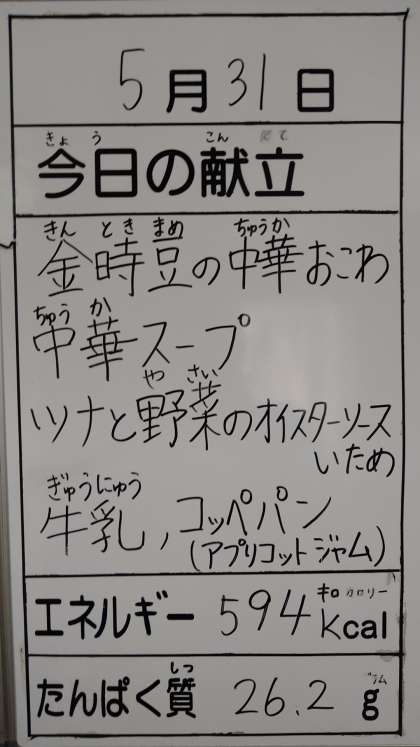 5月31日
きょう こん だて
今日の献立
きん とき まめ ちゅうか
金時豆の中華おこわ
ちゅう か
中華スープ
や さい
ツナと野菜のオイスターソース
いため
ぎゅうにゅう
牛乳, コッペパン
(アプリコットジャム)
キロ カロリー
エネルギー 594 kcal
しつ グラム
たんぱく質 26.2 g